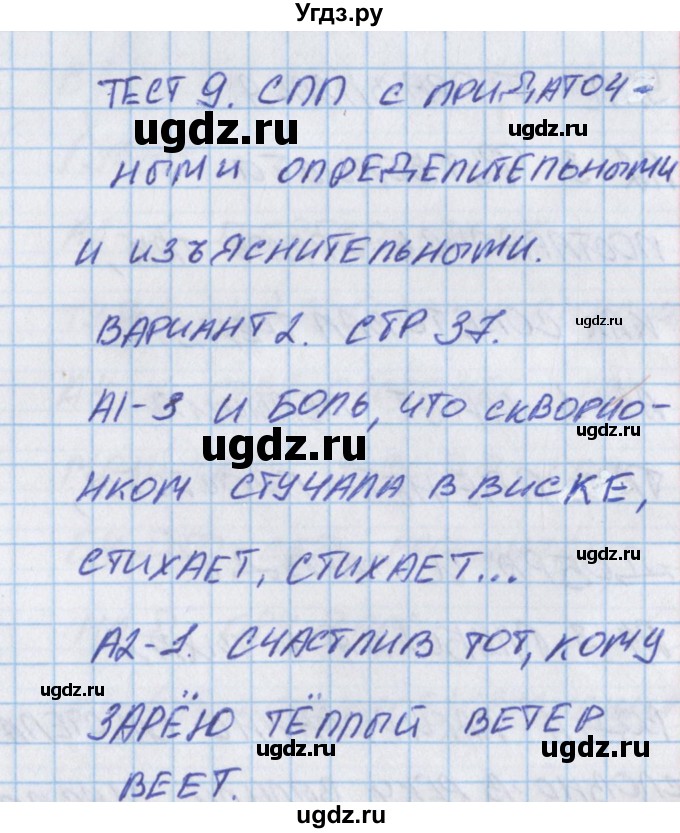 Угдз.ру
ТЕСТ 9. СПП С ПРИДАТОЧ-
НЫМИ ОПРЕДЕЛИТЕЛЬНЫМИ
И ИЗЪЯСНИТЕЛЬНЫМИ.
ВАРИАНТ 2. СТР 37.
А1-3 И БОЛЬ, ЧТО СКВОРЧО-
НКОМ СТУЧАЛА В ВИСКЕ,
СТИХАЕТ, СТИХАЕТ...
А2-1. СЧАСТЛИВ ТОТ, КОМУ
ЗАРЁЮ ТЁПЛЫЙ ВЕТЕР
ВЕЕТ.
ugdz.ru
ugdz.ru
ugdz.ru
ugdz.ru
ugdz.ru
ugdz.ru
ugdz.ru
ugdz.ru
ugdz.ru
ugdz.ru
ugdz.ru